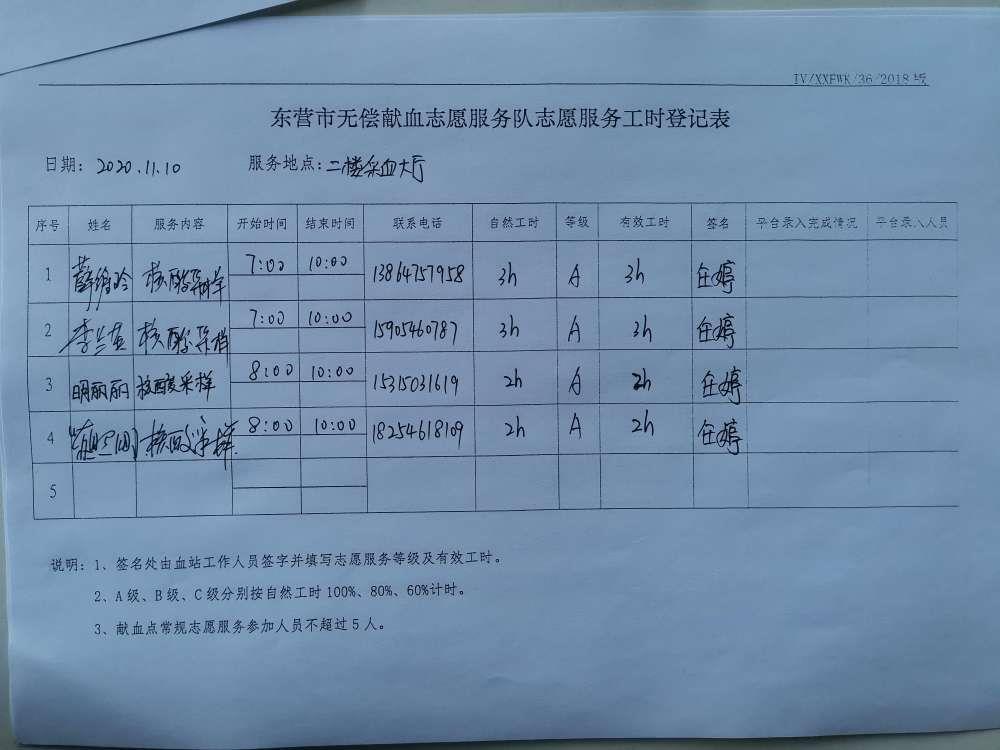 IV/XXFWK/36/2018版
东营市无偿献血志愿服务队志愿服务工时登记表
日期: 2020.11.10 服务地点: 二楼采血大厅
序号 姓名 服务内容 开始时间 结束时间 联系电话 自然工时 等级 有效工时 签名 平台录入完成情况 平台录入人员
1 薛 玲 核酸采样 7:00 10:00 13864757958 3h A 3h 任婷
2 李兰英 核酸采样 7:00 10:00 15905460787 3h A 3h 任婷
3 明丽丽 核酸采样 8:00 10:00 15315031619 2h A 2h 任婷
4 核酸采样 8:00 10:00 18254618109 2h A 2h 任婷
5
说明: 1、签名处由血站工作人员签字并填写志愿服务等级及有效工时。
2、A级、B级、C级分别按自然工时100%、80%、60%计时。
3、献血点常规志愿服务参加人员不超过5人。